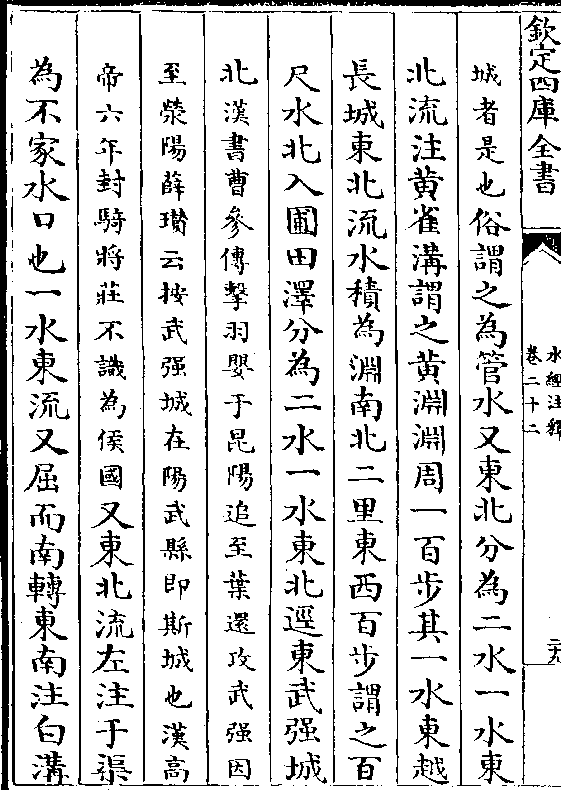 欽定四庫全書
水經注釋
卷二十二
二九
城者是也俗謂之為管水又東北分為二水一水東
北流注黄雀溝謂之黄淵淵周一百步其一水東越
長城東北流水積為淵南北二里東西百步謂之百
尺水北入圃田澤分為二水一水東北逕東武强城
北漢書曹參傳擊羽嬰于昆陽追至葉還攻武强因
至滎陽薛瓚云按武强城在陽武縣即斯城也漢高
帝六年封騎將莊不識為侯國又東北流左注于渠
為不家水口也一水東流又屈而南轉東南注白溝